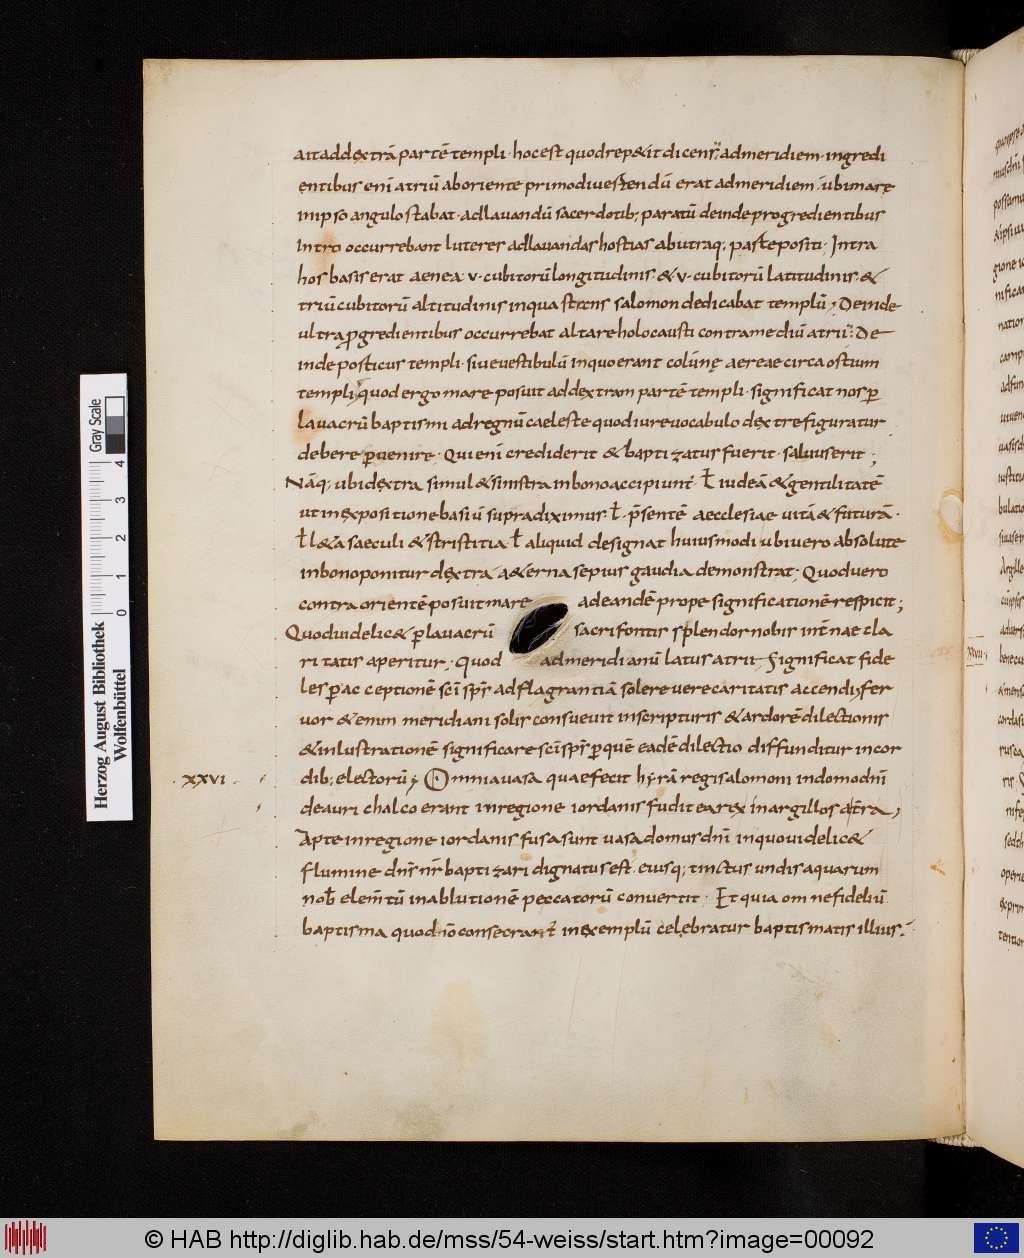 ait ad dextrā partē templi · hoc est quod repetit dicens; ad meridiem · ingredi
entibus enī atriū ab oriente primo divertendū erat ad meridiem · ubi mare
in ipso angulo stabat · ad lavandū sacerdotib; paratū deinde progredientibus
Intro occurrebant luteres ad lavandas hostias ab utraq; parte positi · Intra
hos basis erat aenea · v · cubitorū longitudinis & v · cubitorū latitudinis &
triū cubitorū altitudinis in qua stans salomon dedicabat templū; Deinde
ultra progredientibus occurrebat altare holocausti contra mediū atrii; De
inde porticus templi · sive vestibulū in quo erant colūnę aereae circa ostium
templi; quod ergo mare posuit ad dextram partē templi · significat nos p
lavacrū baptismi ad regnū caeleste quod iure vocabulo dextre figuratur
debere pvenire · Qui enī crediderit & baptizatus fuerit · salvus erit;
Nāq; ubi dextra simul & sinistra in bono accipiunt · ł iudeā & gentilitatē
ut in expositione basiū supra diximus · ł · p̄sentē aecclesiae vitā & futurā ·
ł l&a saeculi & tristitia · ł aliquid designat huiusmodi ubi vero absolute
in bono ponitur dextra a&erna sepius gaudia demonstrat; Quod vero
contra orientē posuit mare ad eandē prope significationē respicit;
Quod videlic& p lavacrū sacri fontis splendor nobis int̄nae cla
ritatis aperitur; Quod ad meridianū latus atrii; Significat fide
les p acceptionē sc̄i sp̄s ad flagrantiā solere vere caritatis accendi; fer
vor & enim meridiani solis consuevit in scripturis & ardorē dilectionis
& inlustrationē significare sc̄i sp̄s p quē eadē dilectio diffunditur in cor
· XXVI · dib; electorū; Omnia vasa quae fecit hyrā regi salomoni in domo dn̄i
de aurichalco erant in regione iordanis fudit ea rex in argillosa t̄ra;
Apte in regione iordanis fusa sunt vasa domus dn̄i in quo videlic&
flumine dn̄s nr̄ baptizari dignatus est · eiusq; tinctus undis aquarum
nob̄ elem̄tū in ablutionē peccatorū convertit · Et quia omne fideliū
baptisma quo dn̄o consecrant̄ in exemplū celebratur baptismatis illius;
Herzog August Bibliothek
Wolfenbüttel
0 1 2 3 4
Gray Scale
© HAB http://diglib.hab.de/mss/54-weiss/start.htm?image=00092